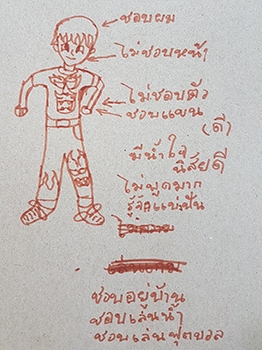 ชอบผม
ไม่ชอบหน้า
ไม่ชอบตัว
ชอบแขน
(ดี)
มีน้ำใจ
นิสัยดี
ไม่พูดมาก
รู้จักแบ่งปัน
ชอบอยู่บ้าน
ชอบเล่นน้ำ
ชอบเล่นฟุตบอล